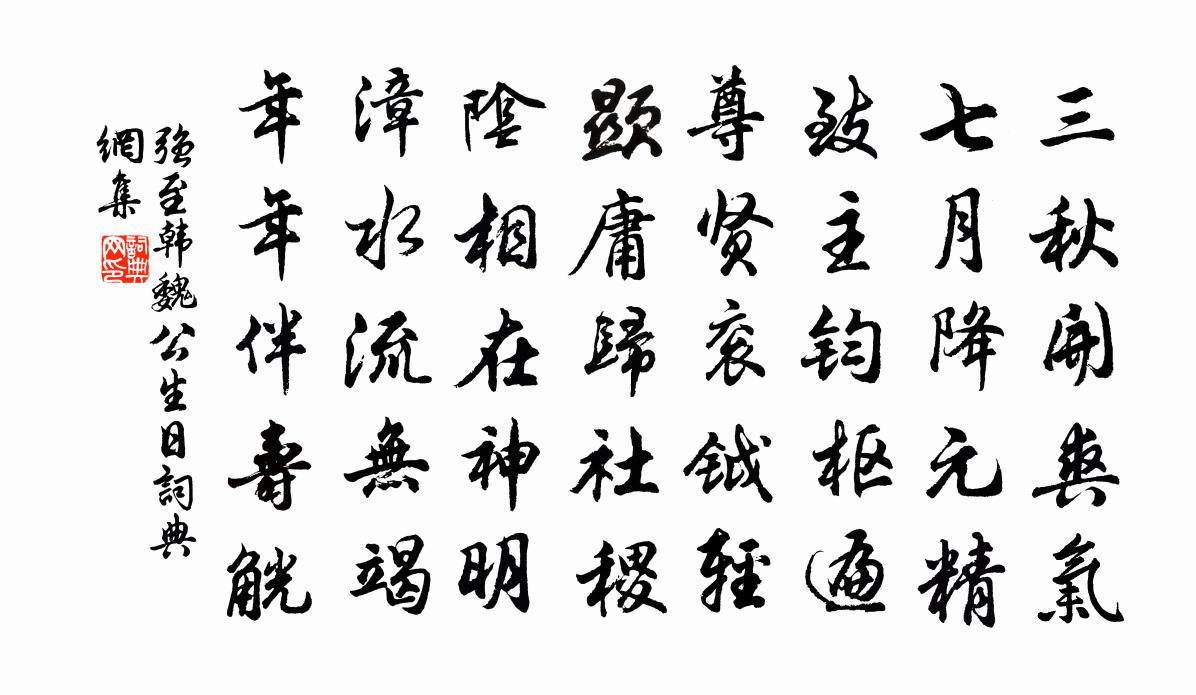 三秋開爽氣
七月降元精
致主鈞枢遍
尊贤衮鉞輕
顯庸歸社稷
陰相在神明
漳水流無竭
年年伴壽觥
強至韩魏公生日詞典
網集
詞典网印